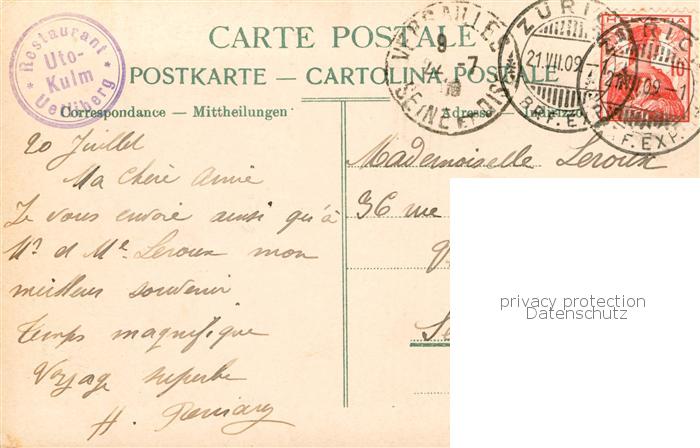 CARTE POSTALE
POSTKARTE — CARTOLINA POSTALE
Correspondance — Mittheilungen
Adresse — Indirizzo
Restaurant
Uto-
Kulm
Uetliberg
VERSAILLES
9
-7
09
SEINE-ET-OISE
ZÜRICH
21.VII.09
BRF.EXP.
HELVETIA
10
21.VII.09
F.EXP.
20 Juillet
Ma Chère Annie
Je vous envoie ainsi qu'à
Mr et Me Leroux mon
meilleur souvenir
Temps magnifique
Voyage superbe
H.
Mademoiselle Leroux
36 rue
privacy protection
Datenschutz